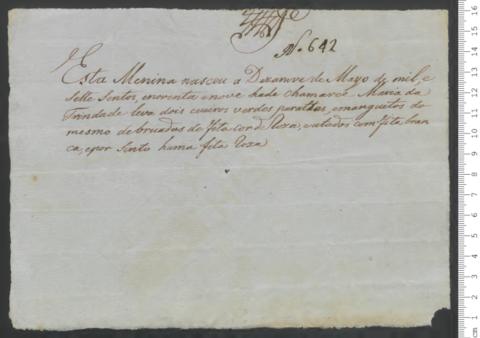 N. 642
Esta Menina nasceu a Dezanove de Mayo de mil, e
Sette Sentos, enoventa enove hade chamarce Maria da
Trindade leva dois cueiros verdes emanguitos do
mesmo de bruados de fita cor d Roza, eatados com fita bran
ca, epor Sinto huma fita Roza